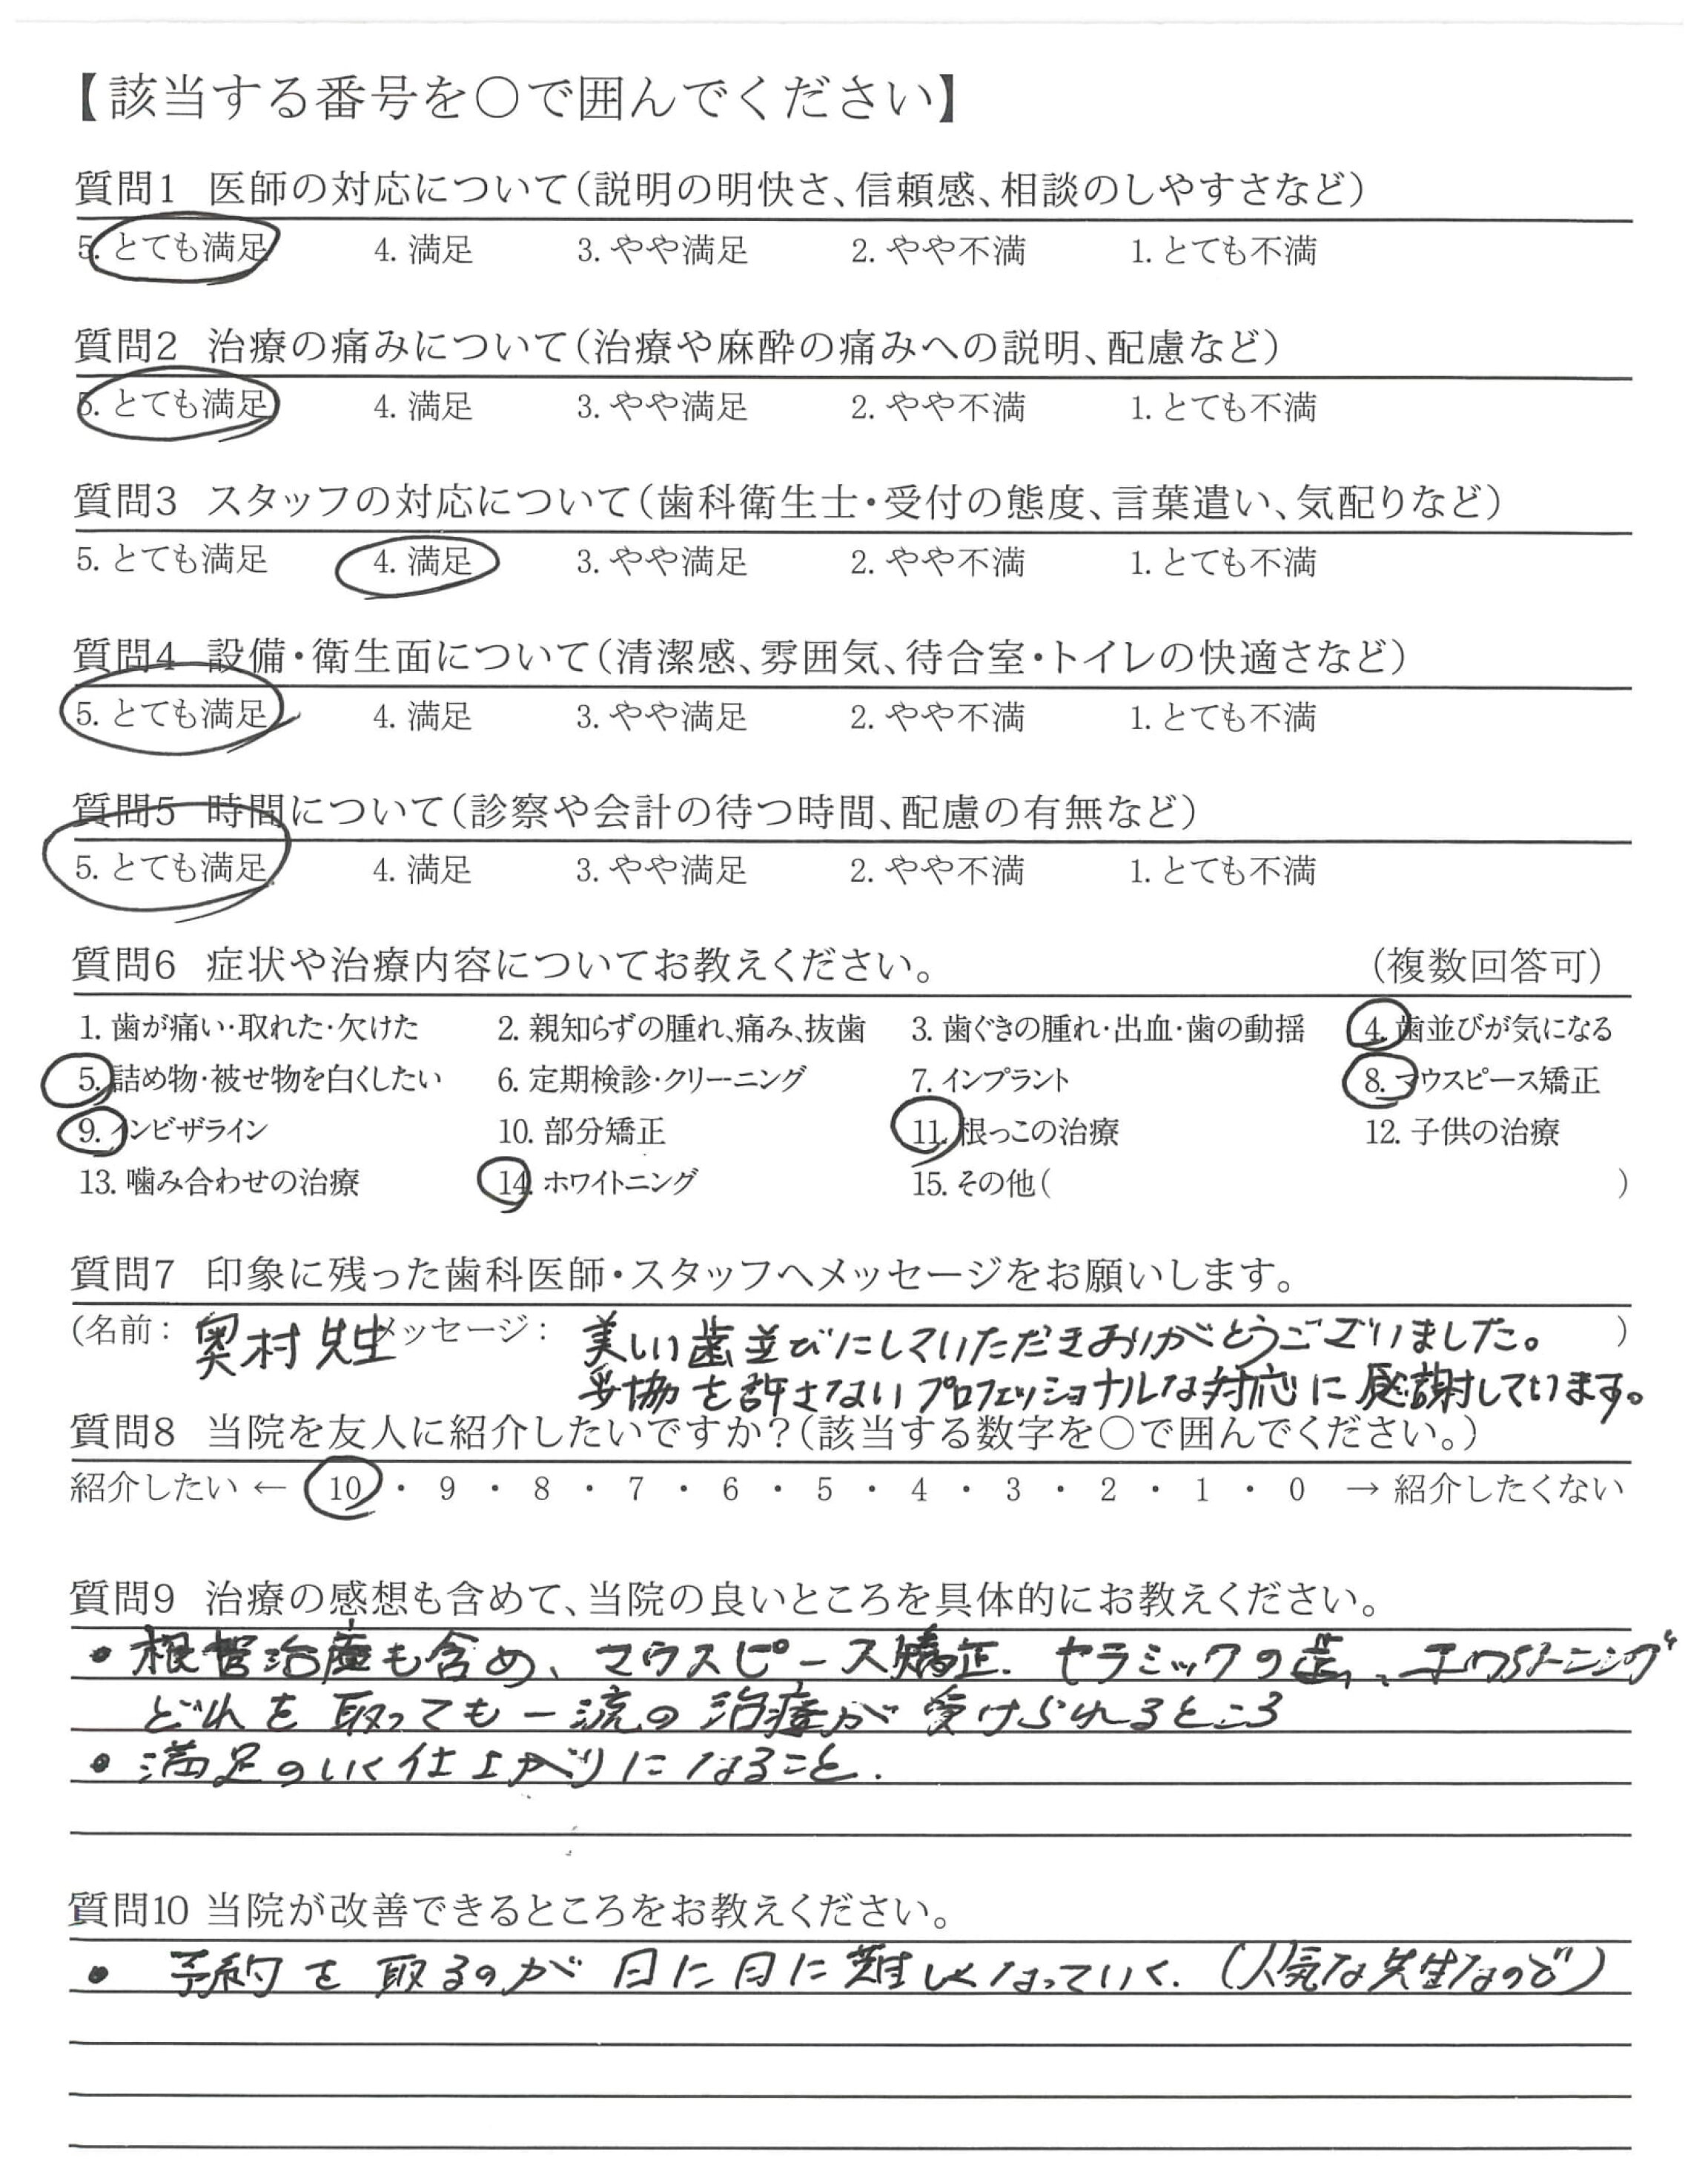 【該当する番号を○で囲んでください】
質問1 医師の対応について（説明の明快さ、信頼感、相談のしやすさなど）
5. とても満足 4. 満足 3. やや満足 2. やや不満 1. とても不満
質問2 治療の痛みについて（治療や麻酔の痛みへの説明、配慮など）
5. とても満足 4. 満足 3. やや満足 2. やや不満 1. とても不満
質問3 スタッフの対応について（歯科衛生士・受付の態度、言葉遣い、気配りなど）
5. とても満足 4. 満足 3. やや満足 2. やや不満 1. とても不満
質問4 設備・衛生面について（清潔感、雰囲気、待合室・トイレの快適さなど）
5. とても満足 4. 満足 3. やや満足 2. やや不満 1. とても不満
質問5 時間について（診察や会計の待つ時間、配慮の有無など）
5. とても満足 4. 満足 3. やや満足 2. やや不満 1. とても不満
質問6 症状や治療内容についてお教えください。 （複数回答可）
1. 歯が痛い・取れた・欠けた 2. 親知らずの腫れ、痛み、抜歯 3. 歯ぐきの腫れ・出血・歯の動揺 4. 歯並びが気になる
5. 詰め物・被せ物を白くしたい 6. 定期検診・クリーニング 7. インプラント 8. マウスピース矯正
9. インビザライン 10. 部分矯正 11. 根っこの治療 12. 子供の治療
13. 噛み合わせの治療 14. ホワイトニング 15. その他（ ）
質問7 印象に残った歯科医師・スタッフへメッセージをお願いします。
（名前： 奥村先生 メッセージ： 美しい歯並びにしていただきありがとうございました。 ）
妥協を許さないプロフェッショナルな対応に感謝しています。
質問8 当院を友人に紹介したいですか？（該当する数字を○で囲んでください。）
紹介したい ← 10 ・ 9 ・ 8 ・ 7 ・ 6 ・ 5 ・ 4 ・ 3 ・ 2 ・ 1 ・ 0 → 紹介したくない
質問9 治療の感想も含めて、当院の良いところを具体的にお教えください。
・根管治療も含め、マウスピース矯正、セラミックの歯、ホワイトニング
どれを取っても一流の治療が受けられるところ
・満足のいく仕上がりになること.
質問10 当院が改善できるところをお教えください。
・予約を取るのが日に日に難しくなっていく.（人気な先生なので）